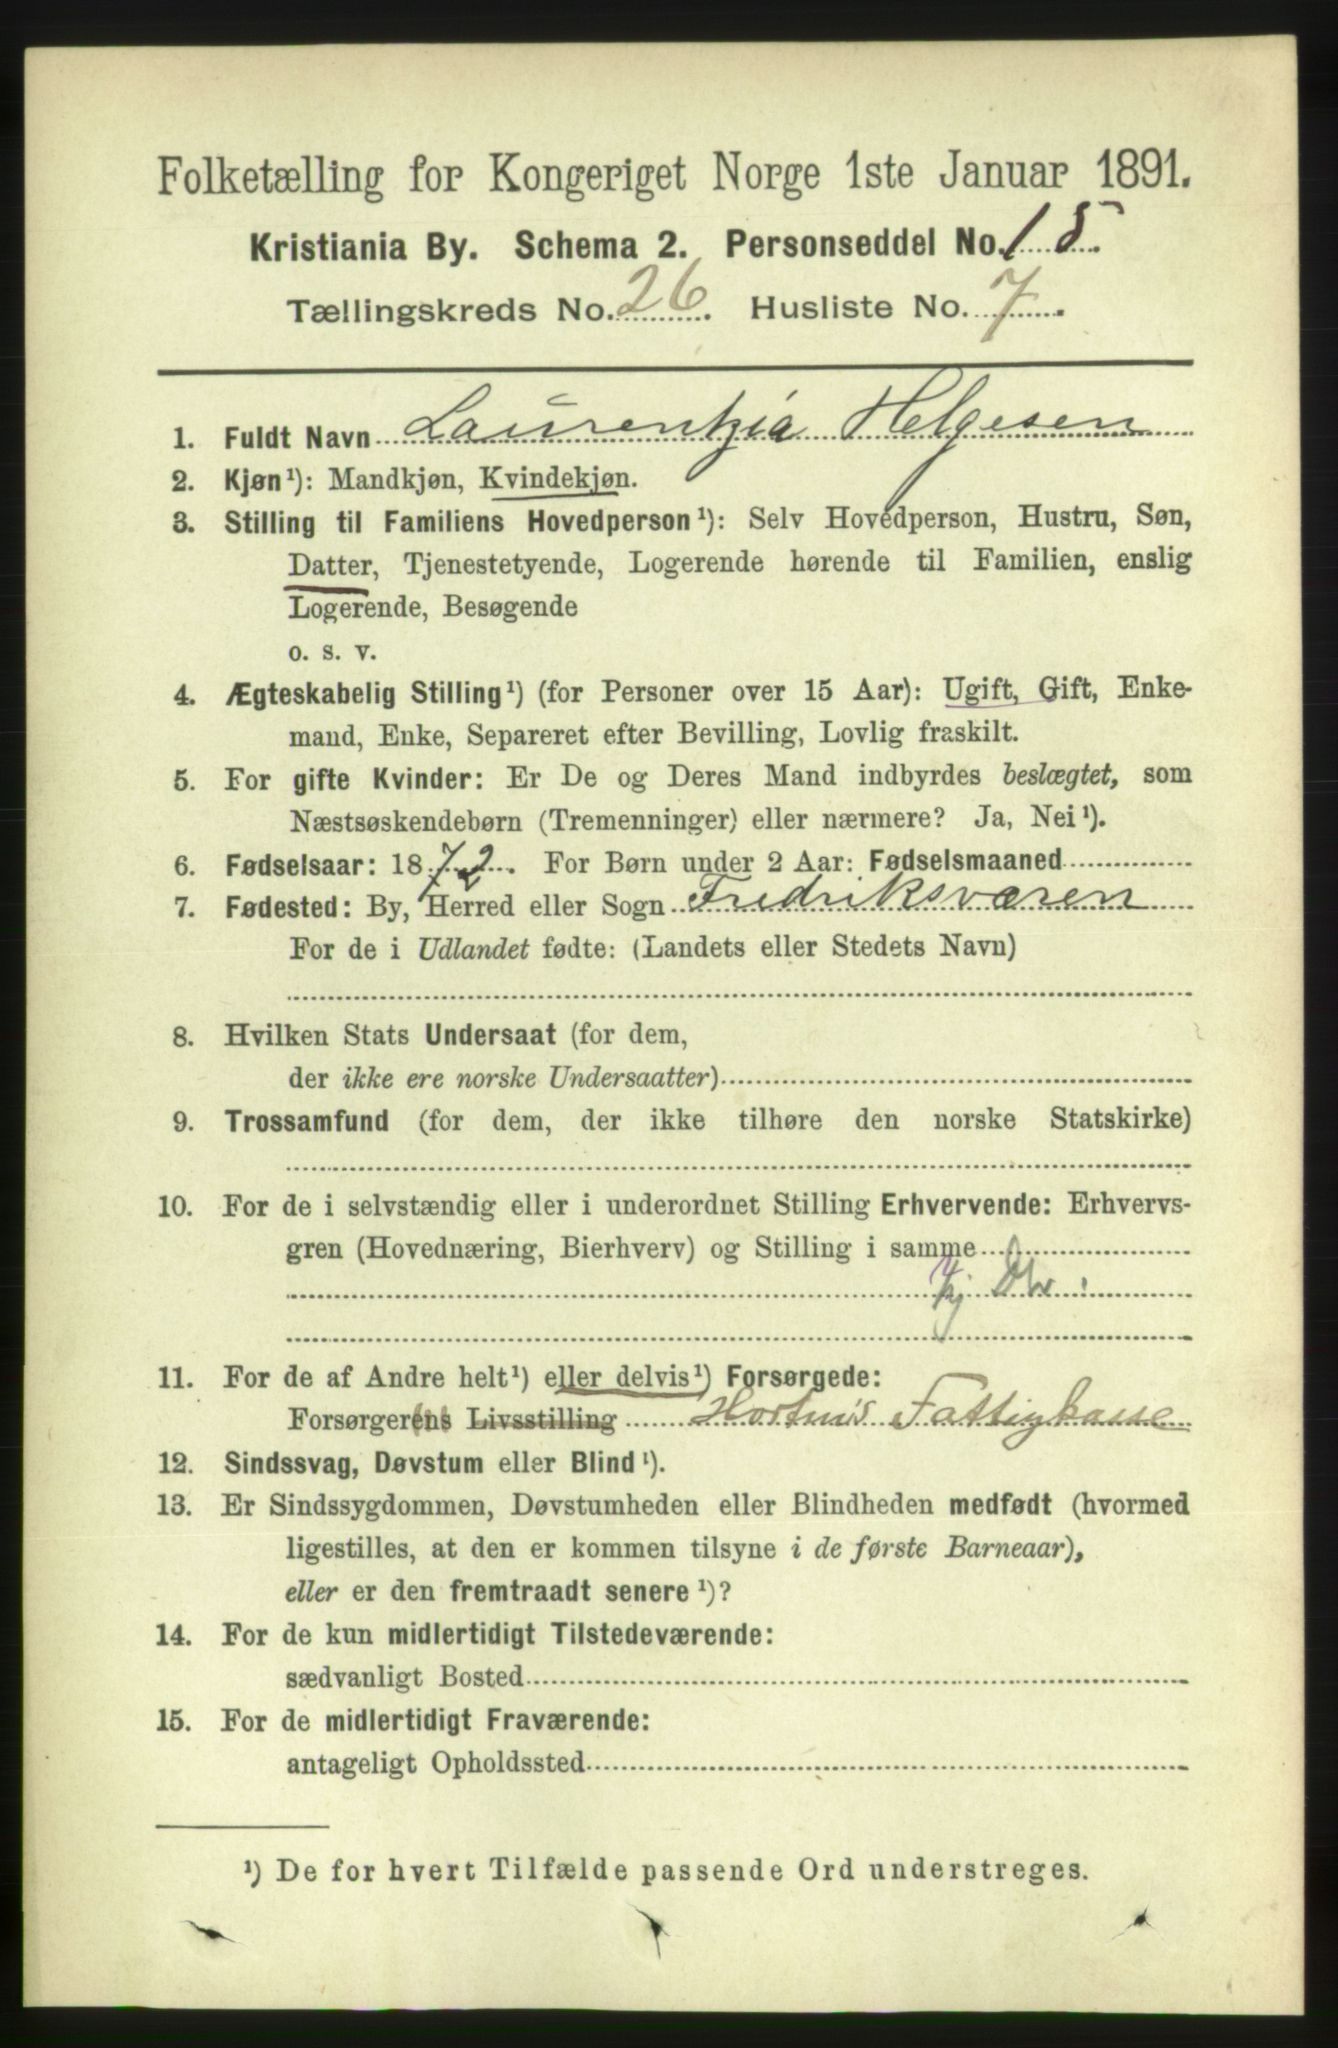 Folketælling for Kongeriget Norge 1ste Januar 1891.
Kristiania By. Schema 2. Personseddel No. 15.
Tællingskreds No. 26. Husliste No. 7.
1. Fuldt Navn Laurentzia Helgesen
2. Kjøn¹): Mandkjøn, Kvindekjøn.
3. Stilling til Familiens Hovedperson¹): Selv Hovedperson, Hustru, Søn,
Datter, Tjenestetyende, Logerende hørende til Familien, enslig
Logerende, Besøgende
o. s. v.
4. Ægteskabelig Stilling¹) (for Personer over 15 Aar): Ugift, Gift, Enke-
mand, Enke, Separeret efter Bevilling, Lovlig fraskilt.
5. For gifte Kvinder: Er De og Deres Mand indbyrdes beslægtet, som
Næstsøskendebørn (Tremenninger) eller nærmere? Ja, Nei¹).
6. Fødselsaar: 1872. For Børn under 2 Aar: Fødselsmaaned
7. Fødested: By, Herred eller Sogn Fredriksværen
For de i Udlandet fødte: (Landets eller Stedets Navn)
8. Hvilken Stats Undersaat (for dem,
der ikke ere norske Undersaatter)
9. Trossamfund (for dem, der ikke tilhøre den norske Statskirke)
10. For de i selvstændig eller i underordnet Stilling Erhvervende: Erhvervs-
gren (Hovednæring, Bierhverv) og Stilling i samme
11. For de af Andre helt¹) eller delvis¹) Forsørgede:
Forsørgerens Livsstilling Horten's Fattigkasse
12. Sindssvag, Døvstum eller Blind¹).
13. Er Sindssygdommen, Døvstumheden eller Blindheden medfødt (hvormed
ligestilles, at den er kommen tilsyne i de første Barneaar),
eller er den fremtraadt senere¹)?
14. For de kun midlertidigt Tilstedeværende:
sædvanligt Bosted
15. For de midlertidigt Fraværende:
antageligt Opholdssted
¹) De for hvert Tilfælde passende Ord understreges.